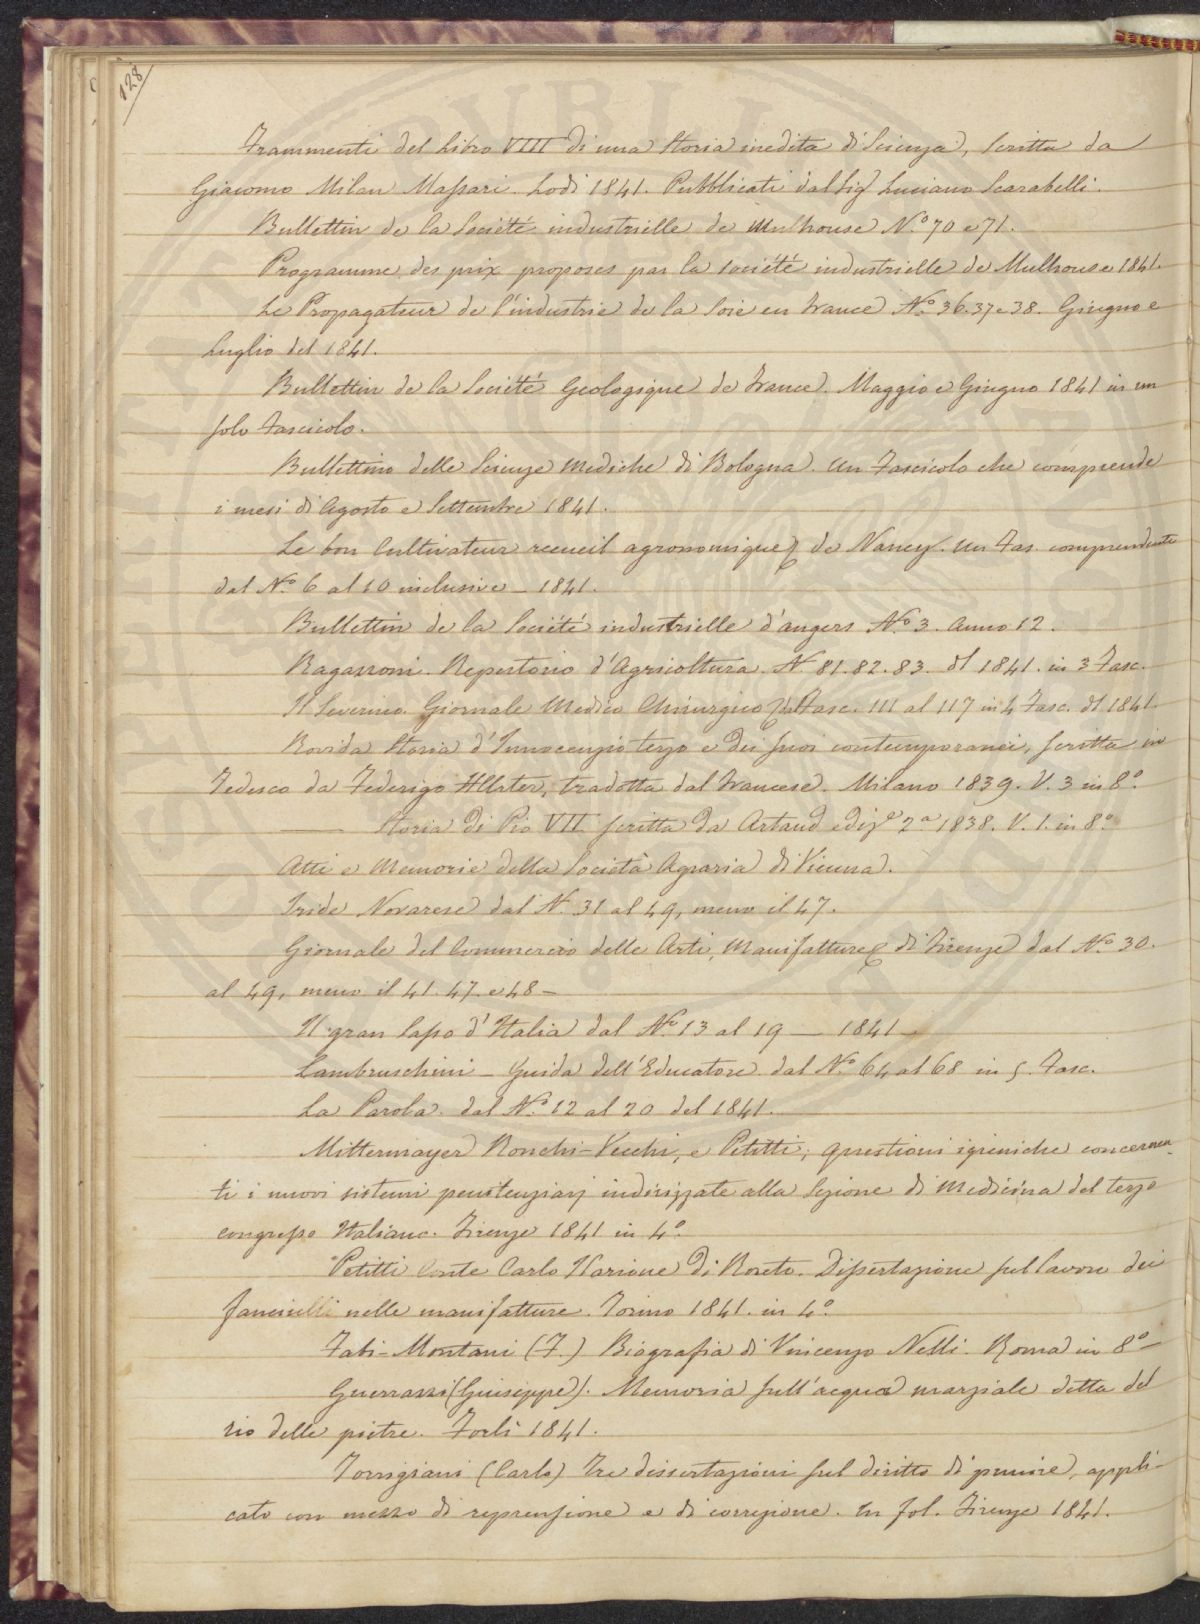 128
Frammenti del Libro VIIII di una Storia inedita di Scienza, scritta da
Giacomo Milan Massari. Lodi 1841. Pubblicati dal Sig Luciano Scarabelli.
Bullettin de la Société industrielle de Mulhouse N.º 70 e 71.
Programme des prix proposes par la société industrielle de Mulhouse 1841.
Le Propagateur de l'industrie de la Soie en France N.º 36.37 e 38. Giugno e
Luglio del 1841.
Bullettin de la Société Geologique de France. Maggio e Giugno 1841 in un
solo Fascicolo.
Bullettino delle Scienze Mediche di Bologna. Un Fascicolo che comprende
i mesi di Agosto e Settembre 1841.
Le bon Cultivateur recueil agronomique de Nancy. Un Fas. comprendente
dal N.º 6 al 10 inclusive - 1841.
Bullettin de la Société industrielle d'angers N.º 3. Anno 12.
Ragazzoni. Repertorio d'Agricoltura. N. 81.82.83. dl 1841. in 3 Fasc.
Il Severino. Giornale Medico Chirurgico dal Fasc. 111 al 117 in 4 Fasc. dl 1841.
Rovida Storia d'Innocenzio terzo e dei suoi contemporanei, scritta in
Tedesco da Federigo Hurter, tradotta dal Francese. Milano 1839. V. 3 in 8.º
—— Storia di Pio VII scritta da Artaud ediz.e 2.a 1838. V. 1. in 8.º
Atti e Memorie della Società Agraria di Vienna.
Iride Novarese dal N. 31 al 49, meno il 47.
Giornale del Commercio delle Arti, Manifatture di Firenze dal N.º 30.
al 49, meno il 41. 47. e 48 -
Il gran Sasso d'Italia dal N.º 13 al 19 — 1841 -
Lambruschini - Guida dell'Educatore dal N.º 64 al 68 in 5. Fasc.
La Parola. dal N.º 12 al 20 del 1841.
Mittermayer Ronchi-Vecchi, e Petitti; questioni igieniche concernen-
ti i nuovi sistemi penitenziarj indirizzate alla Sezione di Medicina del terzo
congresso Italiano. Firenze 1841 in 4.º
Petitti Conte Carlo Ilarione di Roreto. Dissertazione sul lavoro dei
fanciulli nelle manifatture. Torino 1841. in 4.º
Fabi-Montani (F.) Biografia di Vincenzo Nelli. Roma in 8.º -
Guerrazzi (Giuseppe). Memoria sull'acqua marziale detta del
rio delle pietre. Forlì 1841.
Torrigiani (Carlo) Tre dissertazioni sul diritto di punire, appli-
cato con mezzo di reprensione e di correzione. In fol. Firenze 1841.